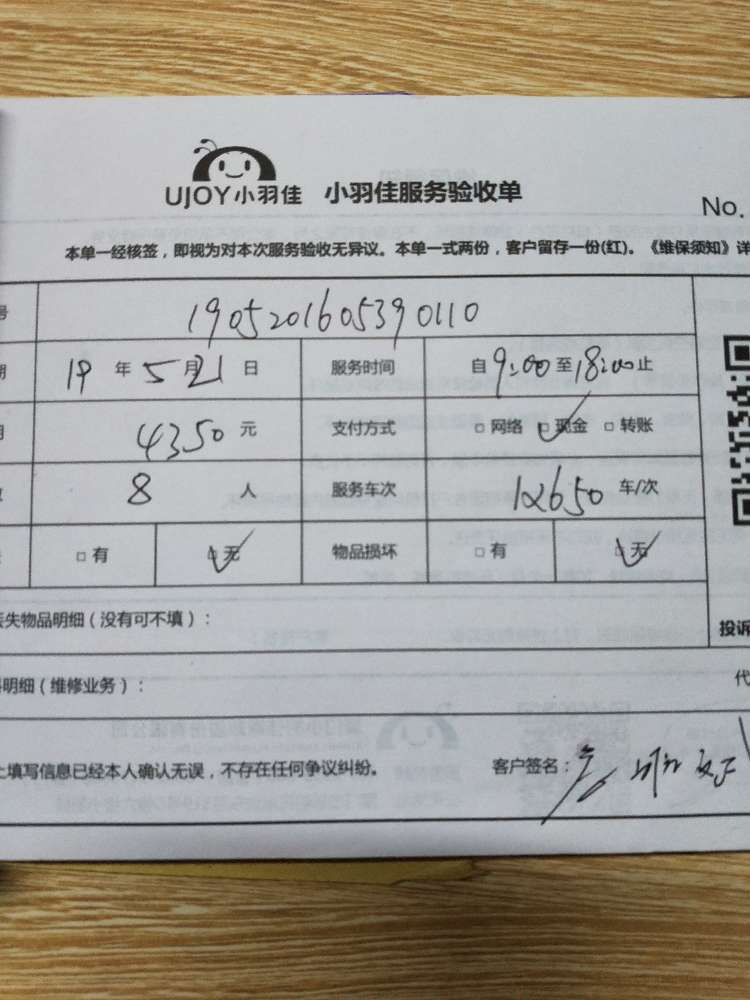 UJOY小羽佳 小羽佳服务验收单
No.
本单一经核签，即视为对本次服务验收无异议。本单一式两份，客户留存一份(红)。《维保须知》详
号 1905201605390110
期 19 年 5 月 21 日 服务时间 自 9:00 至 18:00 止
用 4350 元 支付方式 □ 网络 ☑ 现金 □ 转账
数 8 人 服务车次 12650 车/次
□ 有 ☑ 无 物品损坏 □ 有 ☑ 无
丢失物品明细（没有可不填）：
投诉
料明细（维修业务）：
代
上填写信息已经本人确认无误，不存在任何争议纠纷。 客户签名：